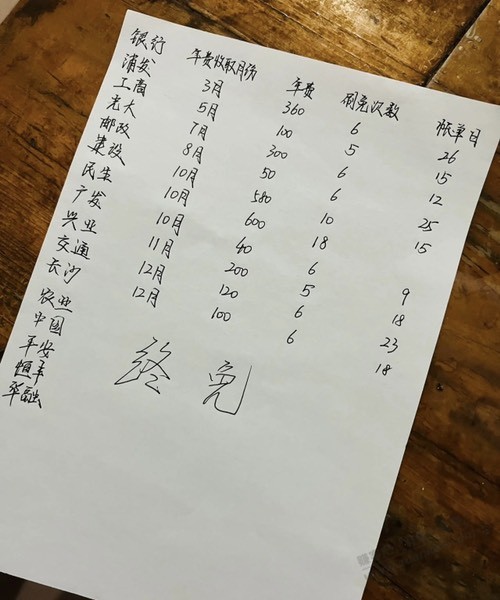 银行 年费收取月份 年费 刷免次数 帐单日
浦发 3月 360 6 26
工商 5月 100 5 15
光大 7月 300 6 12
邮政 8月 50 6 25
建设 10月 580 10 15
民生 10月 600 18
广发 10月 40 6 9
兴业 11月 200 5 18
交通 12月 120 6 23
长沙 12月 100 6 18
农业
中国
平安
恒丰
华融
终免